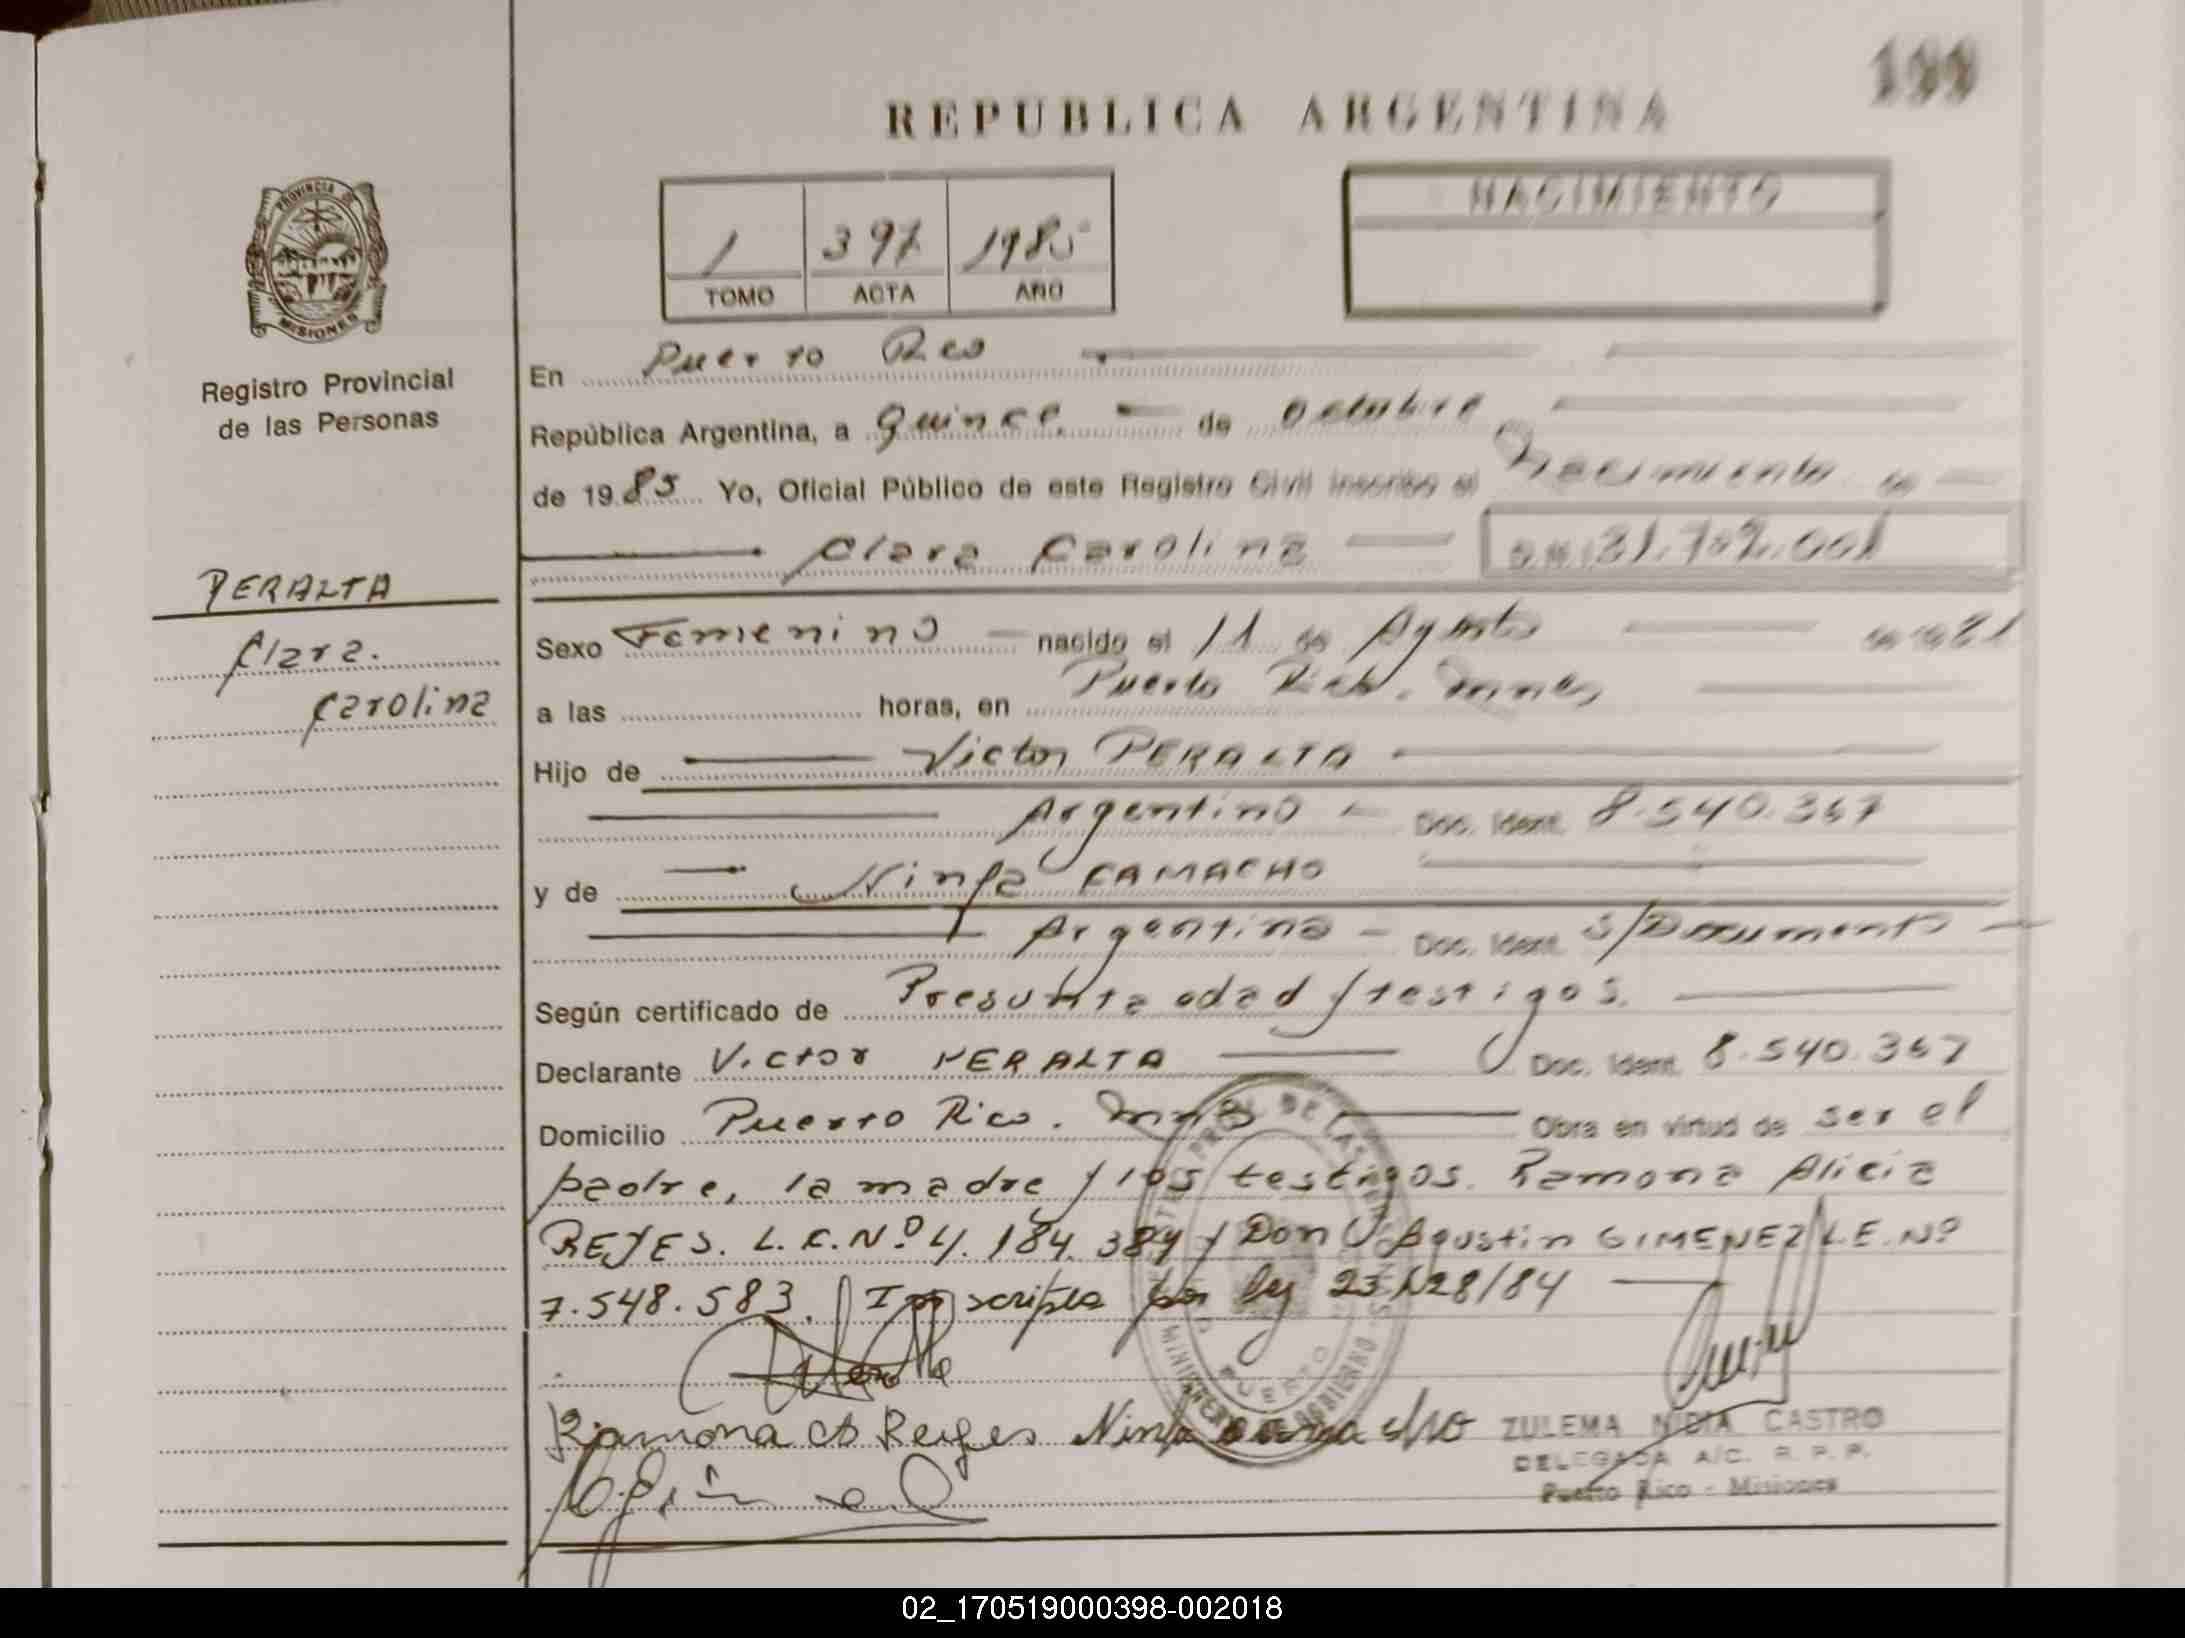 199
REPUBLICA ARGENTINA
PROVINCIA DE
MISIONES
Registro Provincial
de las Personas
1 397 1985
TOMO ACTA AÑO
NACIMIENTO
En Puerto Rico
República Argentina, a quince de octubre
de 1985 Yo, Oficial Público de este Registro Civil inscribo el Nacimiento de
Clara Carolina
31.709.001
PERALTA
Clara
Carolina
Sexo Femenino nacido el 11 de Agosto de 1981
a las horas, en Puerto Rico. Mnes
Hijo de Victor PERALTA
Argentino Doc. Ident. 8.540.367
y de Ninfa CAMACHO
Argentina Doc. Ident. s/Documento
Según certificado de Presunta edad y testigos.
Declarante Victor PERALTA Doc. Ident. 8.540.367
Domicilio Puerto Rico. Mnes Obra en virtud de ser el
padre, la madre y los testigos. Ramona Alicia
REYES. L.C.Nº 4.184.384 y Don Agustin GIMENEZ L.E.Nº
7.548.583. Inscripta por ley 23.128/84
Ramona A Reyes Ninfa camacho
ZULEMA NIDIA CASTRO
DELEGADA A/C. R. P. P.
Puerto Rico - Misiones
02_170519000398-002018